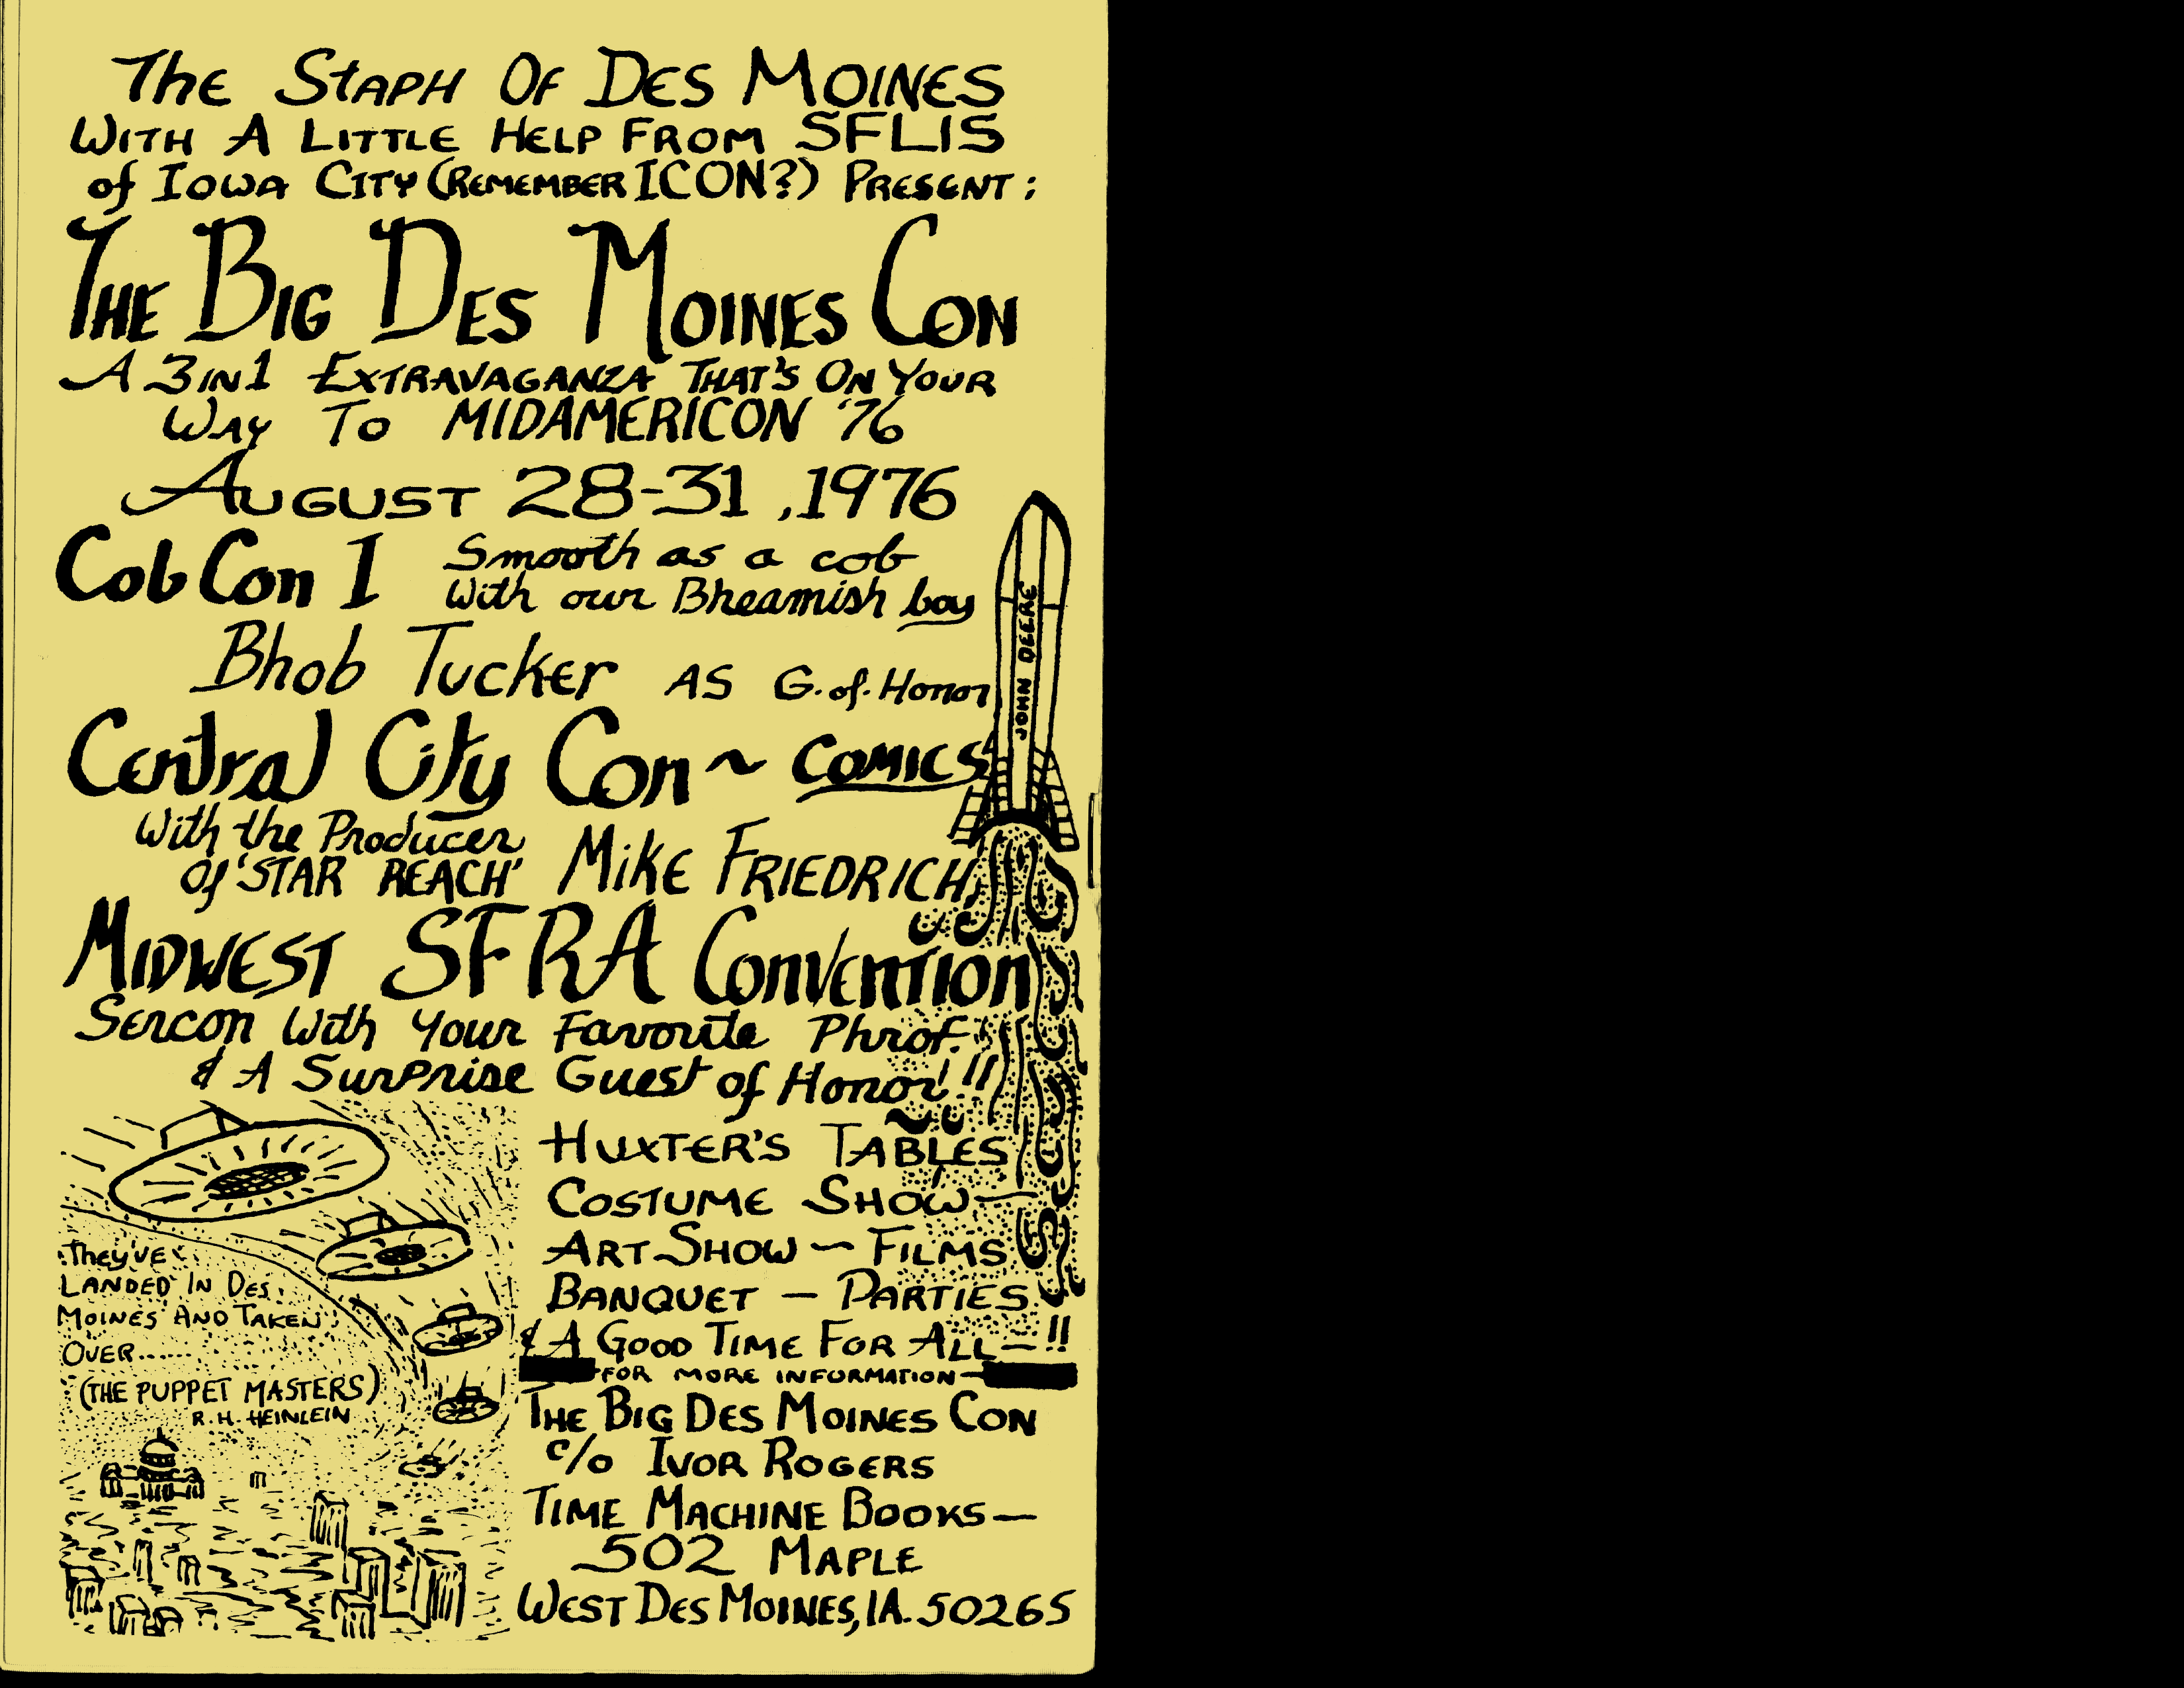 The Staph Of Des Moines
With A Little Help From SFLIS
of Iowa City (Remember ICON?) Present:
The Big Des Moines Con
A 3 in 1 Extravaganza That's On Your
Way To MIDAMERICON '76
August 28-31, 1976
Cob Con I
Smooth as a cob
With our Bheamish boy
Bhob Tucker as G. of. Honor
JOHN DEERE
Central City Con ~ Comics
With the Producer
Of 'STAR REACH' Mike Friedrich
Midwest SFRA Convention
Sercon With Your Favorite Phrof.
& A Surprise Guest of Honor!!!
Huxter's Tables
Costume Show —
Art Show — Films
Banquet — Parties
& A Good Time For All — !!
They've
Landed In Des
Moines And Taken
Over......
(The Puppet Masters)
R. H. Heinlein
— For More Information —
The Big Des Moines Con
c/o Ivor Rogers
Time Machine Books —
502 Maple
West Des Moines, IA. 50265